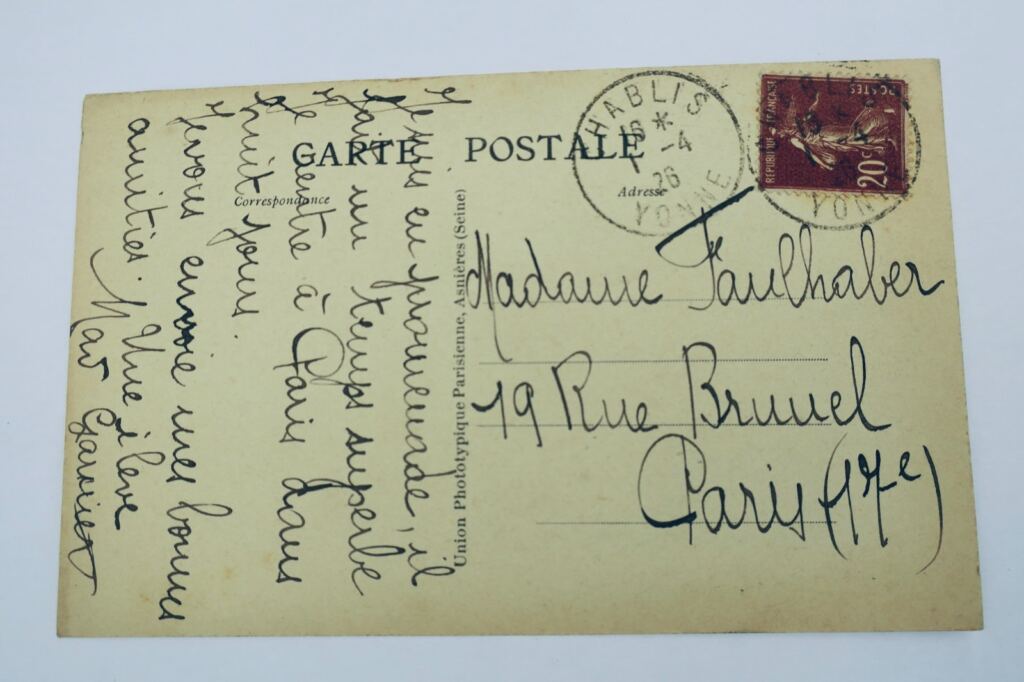 CARTE POSTALE
Correspondance
Adresse
Je suis en promenade, il
fait un temps superbe
Je rentre à Paris dans
huit jours.
Je vous envoie mes bonnes
amitiés. Une élève
Union Phototypique Parisienne, Asnières (Seine)
CHABLIS
16 *
1 -4
26
YONNE
REPUBLIQUE FRANÇAISE
POSTES
20c
Madame Faulhaber
19 Rue Brunel
Paris (17e)